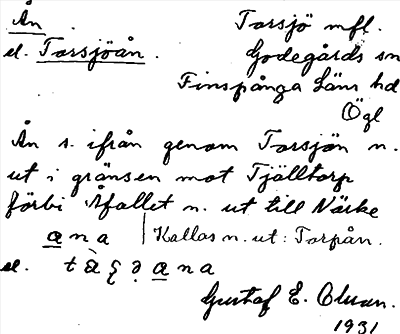 Ån. Torsjö mfl.
el. Torsjöån. Godegårds sn
Finspånga Läns hd
Ögl
Ån s. ifrån genom Torsjön n.
ut i gränsen mot Tjälltorp
förbi Åfallet n. ut till Närke
ana | Kallas n. ut: Torpån.
el. ana
Gustaf E. Olsson.
1931